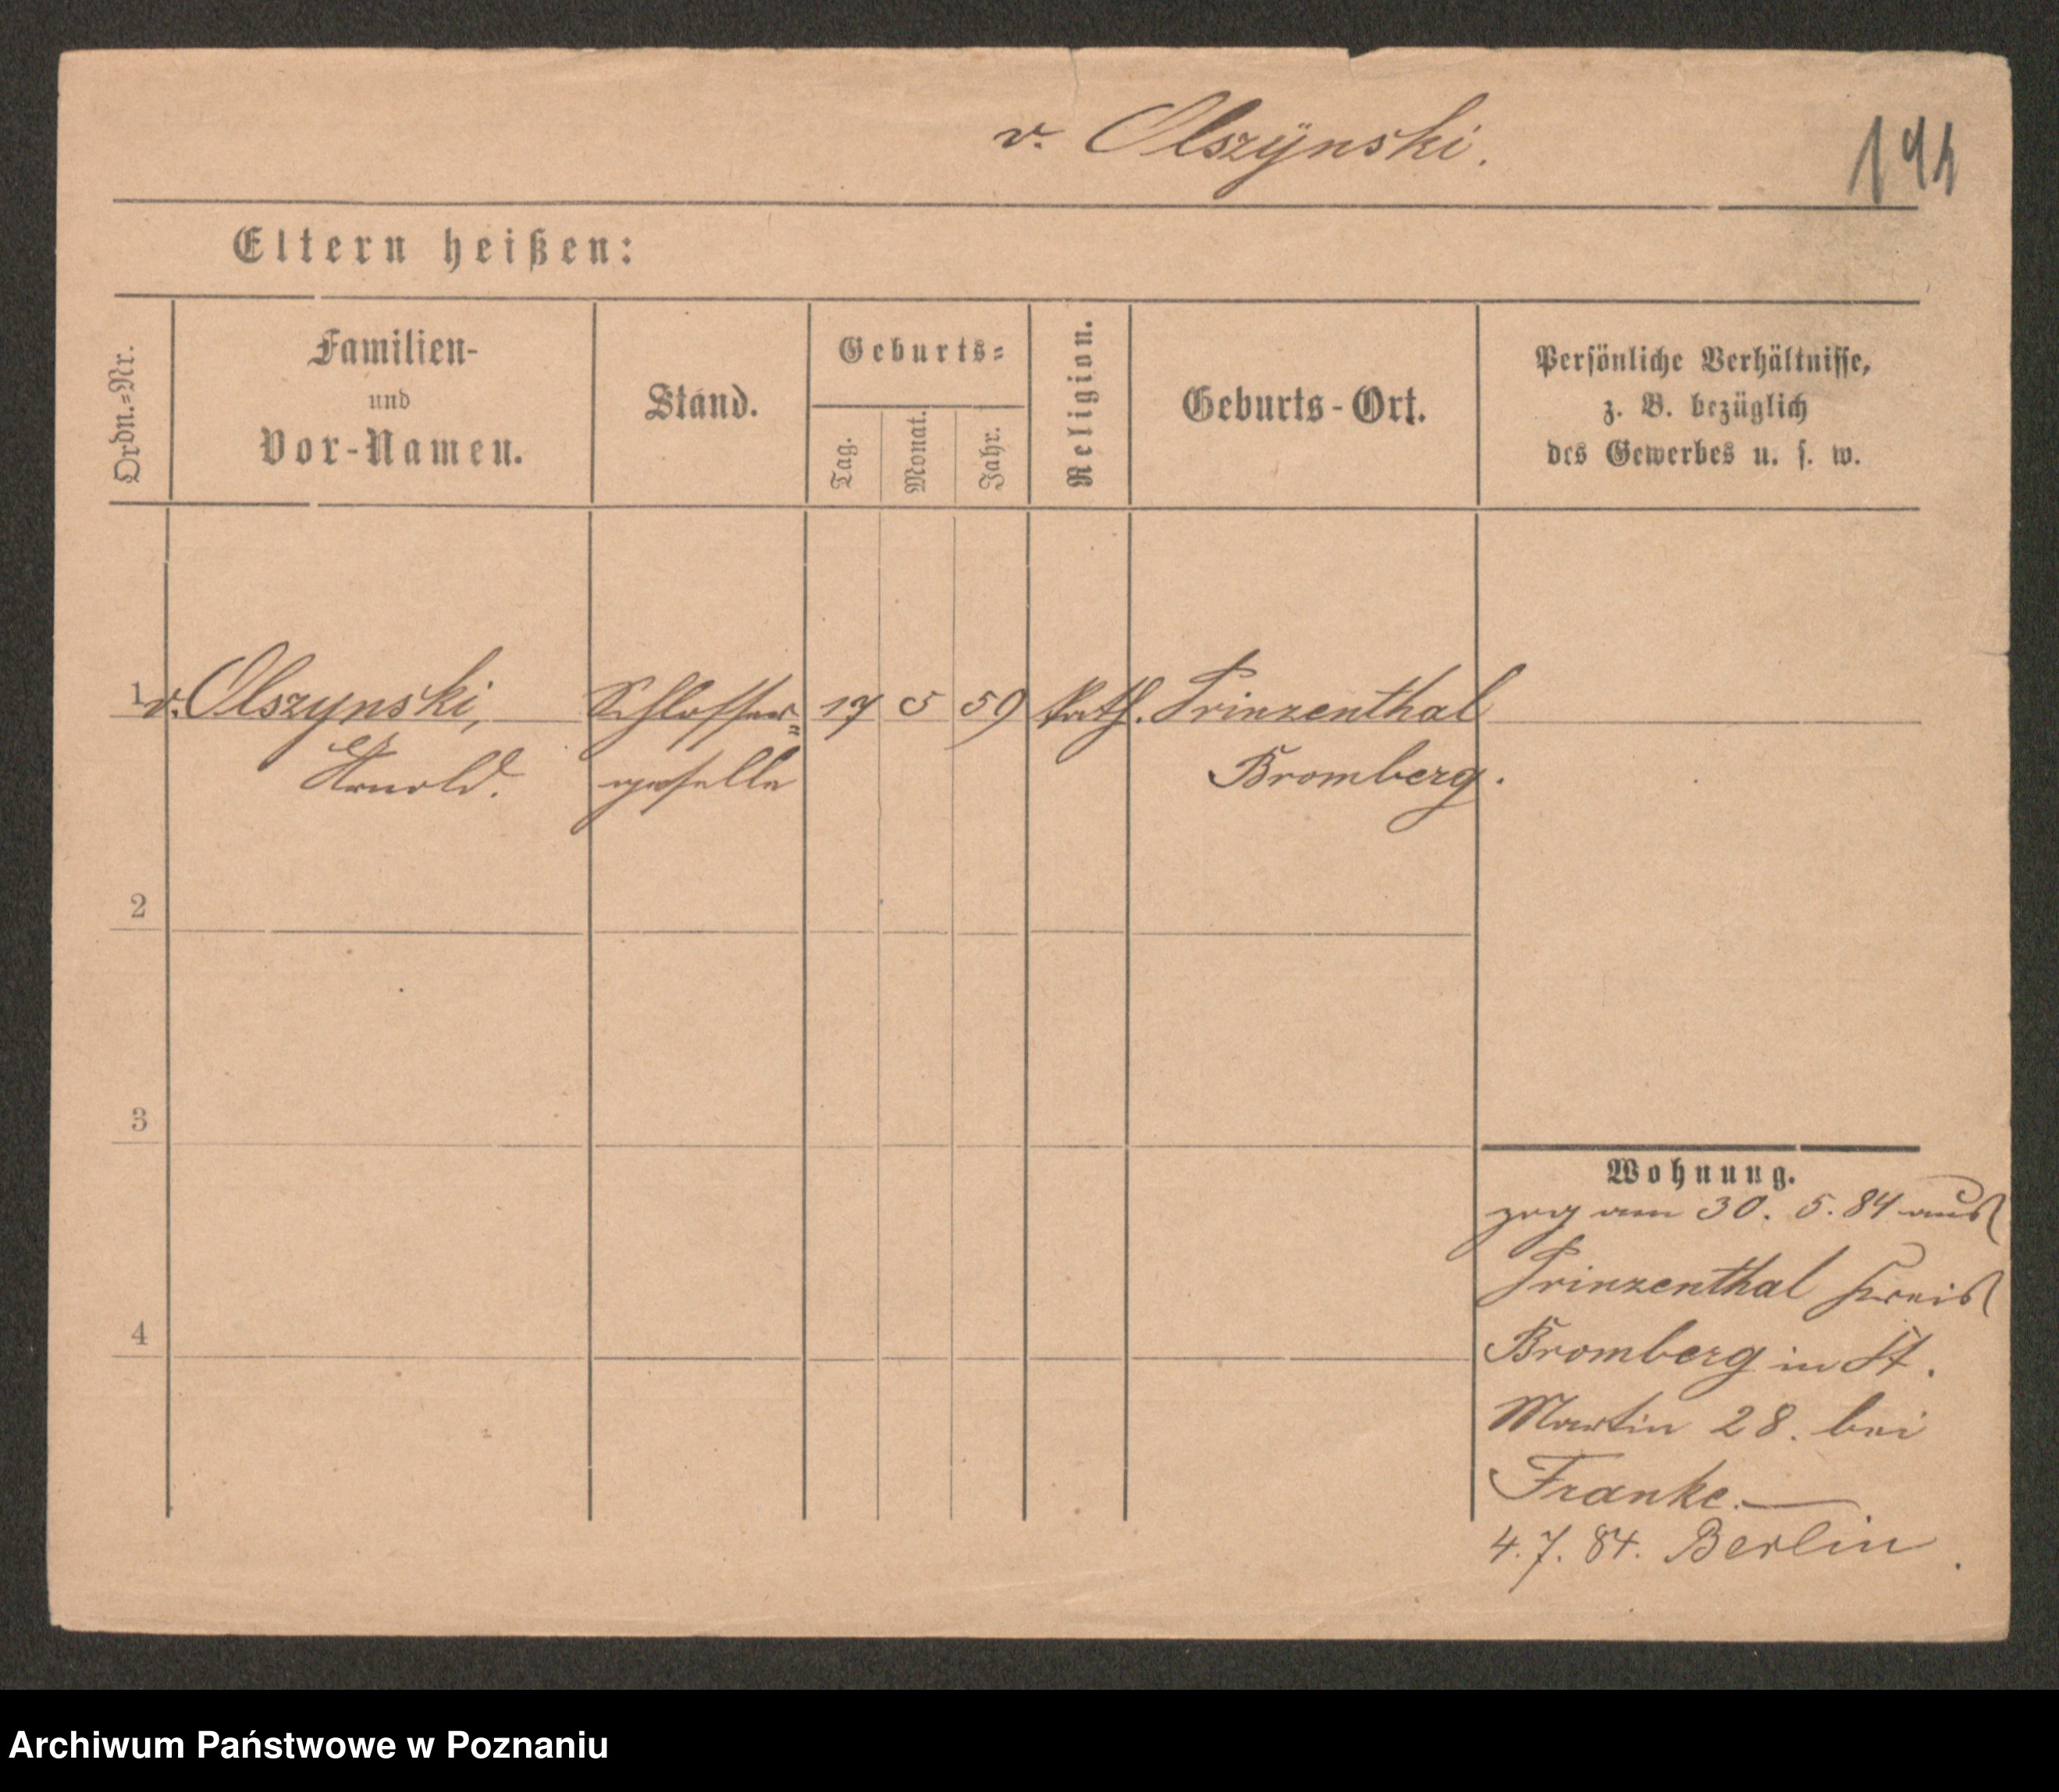 v. Olszÿnski.
194
Eltern heißen:
Ordn.=Nr.
Familien-
und
Vor-Namen.
Stand.
Geburts=
Tag.
Monat.
Jahr.
Religion.
Geburts-Ort.
Persönliche Verhältnisse,
z. B. bezüglich
des Gewerbes u. s. w.
1 v. Olszynski, Schlosser„ 17 5 59 kath. Prinzenthal
Arnold. geselle Bromberg.
2
3
4
Wohnung.
zog am 30. 5. 84 aus
Prinzenthal Kreis
Bromberg in St.
Martin 28. bei
Franke.—
4.7.84. Berlin.
Archiwum Państwowe w Poznaniu